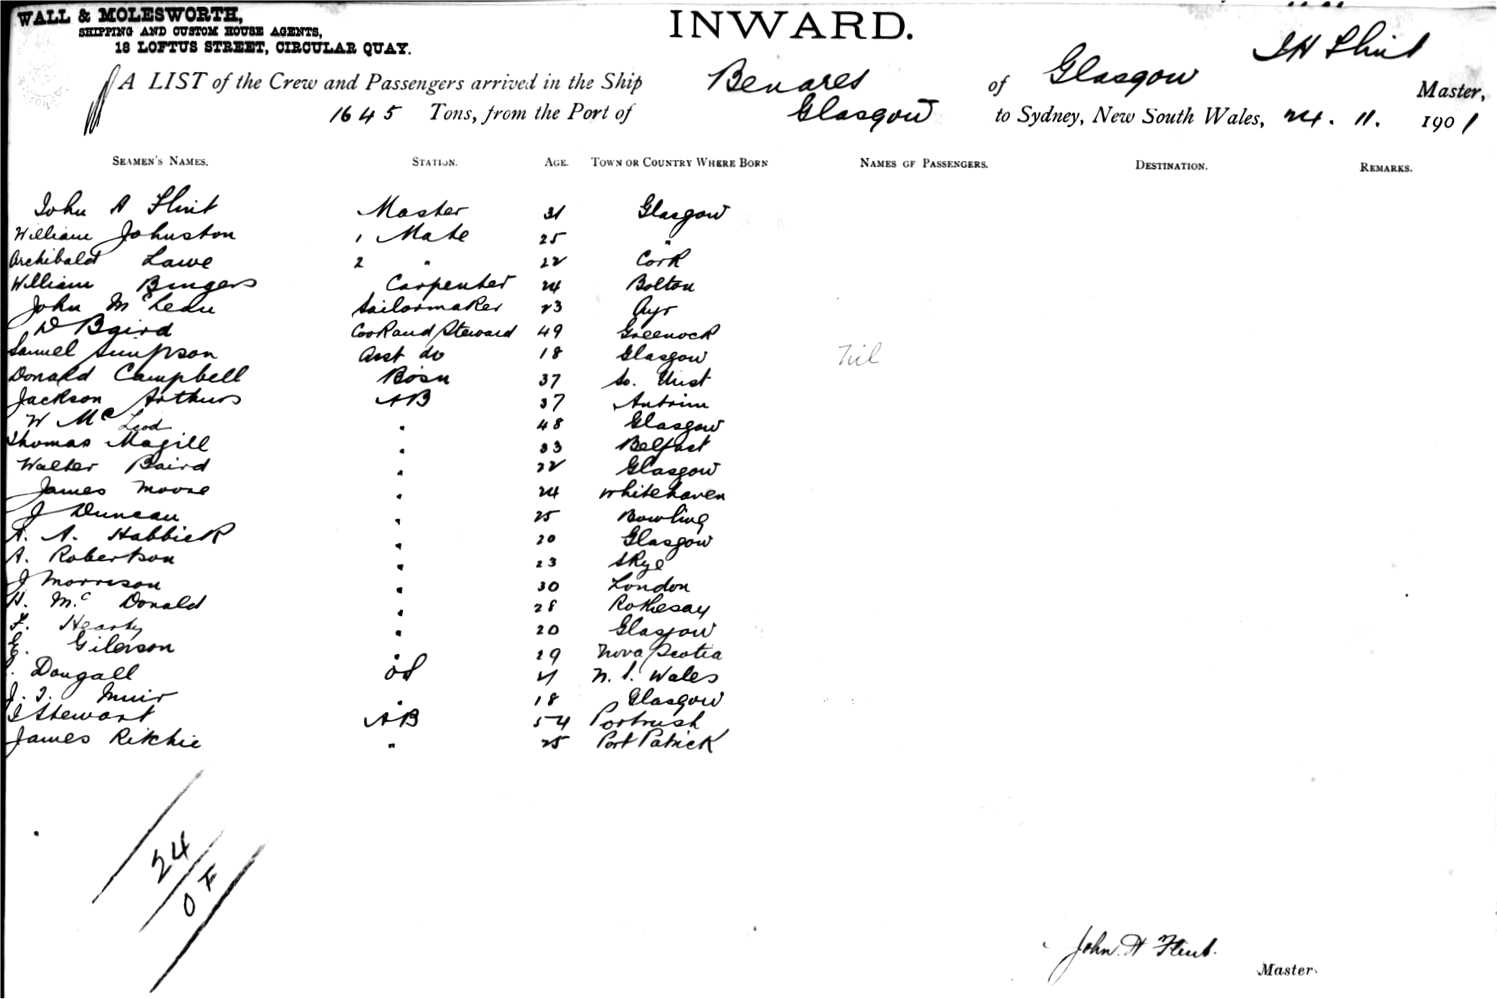 WALL & MOLESWORTH,
SHIPPING AND CUSTOM HOUSE AGENTS,
18 LOFTUS STREET, CIRCULAR QUAY.
INWARD.
A LIST of the Crew and Passengers arrived in the Ship Benares of Glasgow J H Flint Master,
1645 Tons, from the Port of Glasgow to Sydney, New South Wales, 24. 11. 1901
SEAMEN'S NAMES. STATION. AGE. TOWN OR COUNTRY WHERE BORN NAMES OF PASSENGERS. DESTINATION. REMARKS.
John A Flint Master 31 Glasgow
William Johnston 1 Mate 25 "
Archibald Lawe 2 " 22 Cork
William Bingers Carpenter 24 Bolton
John McLean Sailormaker 23 Ayr
D Baird Cook and Steward 49 Greenock
Samuel Simpson Asst do 18 Glasgow Nil
Donald Campbell Bosn 37 So. Uist
Jackson Arthurs AB 37 Antrim
W McLeod " 48 Glasgow
Thomas Magill " 33 Belfast
Walter Baird " 22 Glasgow
James Moore " 24 Whitehaven
J Duncan " 25 Bowling
A. A. Habbick " 20 Glasgow
A. Robertson " 23 Skye
J Morrison " 30 London
H. McDonald " 28 Rothesay
F. Hearty " 20 Glasgow
E. Gilerson " 29 Nova Scotia
Dougall OS 21 N. S. Wales
J. T. Muir " 18 Glasgow
J Stewart AB 54 Portrush
James Ritchie " 25 Port Patrick
24
OF
John H Flint.
Master.